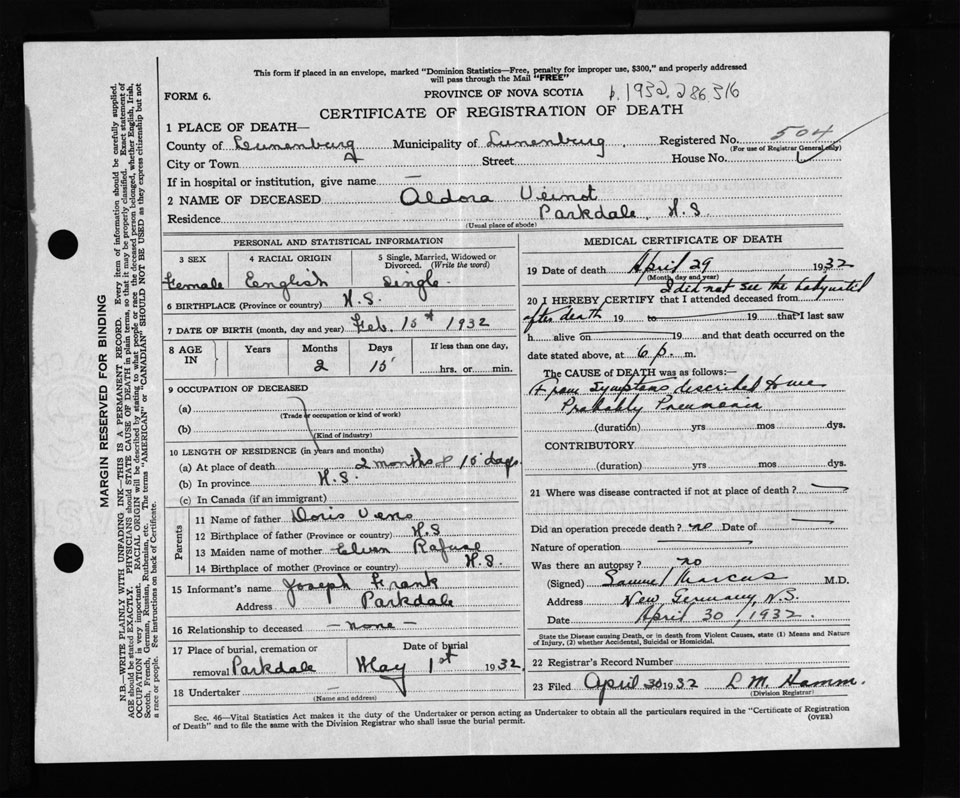 This form if placed in an envelope, marked "Dominion Statistics—Free, penalty for improper use, $300," and properly addressed
will pass through the Mail "FREE"
FORM 6.
PROVINCE OF NOVA SCOTIA
1932.286316
CERTIFICATE OF REGISTRATION OF DEATH
1 PLACE OF DEATH—
County of Lunenburg Municipality of Lunenburg Registered No. 504
(For use of Registrar General only)
City or Town Street House No.
If in hospital or institution, give name —
2 NAME OF DECEASED Aldora Veinot
Residence Parkdale, N.S.
(Usual place of abode)
PERSONAL AND STATISTICAL INFORMATION
3 SEX 4 RACIAL ORIGIN 5 Single, Married, Widowed or Divorced. (Write the word)
Female English Single.
6 BIRTHPLACE (Province or country) N.S.
7 DATE OF BIRTH (month, day and year) Feb. 15th 1932
8 AGE IN Years Months Days If less than one day,
2 15 hrs. or min.
9 OCCUPATION OF DECEASED
(a)
(Trade or occupation or kind of work)
(b)
(Kind of industry)
10 LENGTH OF RESIDENCE (in years and months)
(a) At place of death 2 months & 15 days
(b) In province N.S.
(c) In Canada (if an immigrant)
Parents
11 Name of father Doris
12 Birthplace of father (Province or country) N.S
13 Maiden name of mother Rafuse
14 Birthplace of mother (Province or country) N.S.
15 Informant's name Joseph Frank
Address Parkdale
16 Relationship to deceased — none —
17 Place of burial, cremation or removal Parkdale Date of burial May 1st 1932
18 Undertaker
(Name and address)
MEDICAL CERTIFICATE OF DEATH
19 Date of death April 29 1932
(Month, day and year)
I did not see the baby until
20 I HEREBY CERTIFY that I attended deceased from
after death 19 to 19 that I last saw
h alive on 19 and that death occurred on the
date stated above, at 6 p. m.
The CAUSE of DEATH was as follows:—
From Symptoms described to me
Probably Pneumonia
(duration) yrs mos dys.
CONTRIBUTORY
(duration) yrs mos dys.
21 Where was disease contracted if not at place of death? —
Did an operation precede death? no Date of —
Nature of operation —
Was there an autopsy? no
(Signed) Samuel Marcus M.D.
Address New Germany, N.S.
Date April 30, 1932
State the Disease causing Death, or in death from Violent Causes, state (1) Means and Nature
of Injury, (2) whether Accidental, Suicidal or Homicidal.
22 Registrar's Record Number
23 Filed April 30 1932 L M. Hamm.
(Division Registrar)
Sec. 46—Vital Statistics Act makes it the duty of the Undertaker or person acting as Undertaker to obtain all the particulars required in the "Certificate of Registration
of Death" and to file the same with the Division Registrar who shall issue the burial permit.
(OVER)
MARGIN RESERVED FOR BINDING
N.B.—WRITE PLAINLY WITH UNFADING INK—THIS IS A PERMANENT RECORD. Every item of information should be carefully supplied.
AGE should be stated EXACTLY. PHYSICIANS should STATE CAUSE OF DEATH in plain terms, so that it may be properly classified. Exact statement of
OCCUPATION is very important. RACIAL ORIGIN will be described by stating to what people or race the deceased person belonged, whether English, Irish,
Scotch, French, German, Russian, Ruthenian, etc. The terms "AMERICAN" or "CANADIAN" SHOULD NOT BE USED as they express citizenship but not
a race or people. See instructions on back of Certificate.